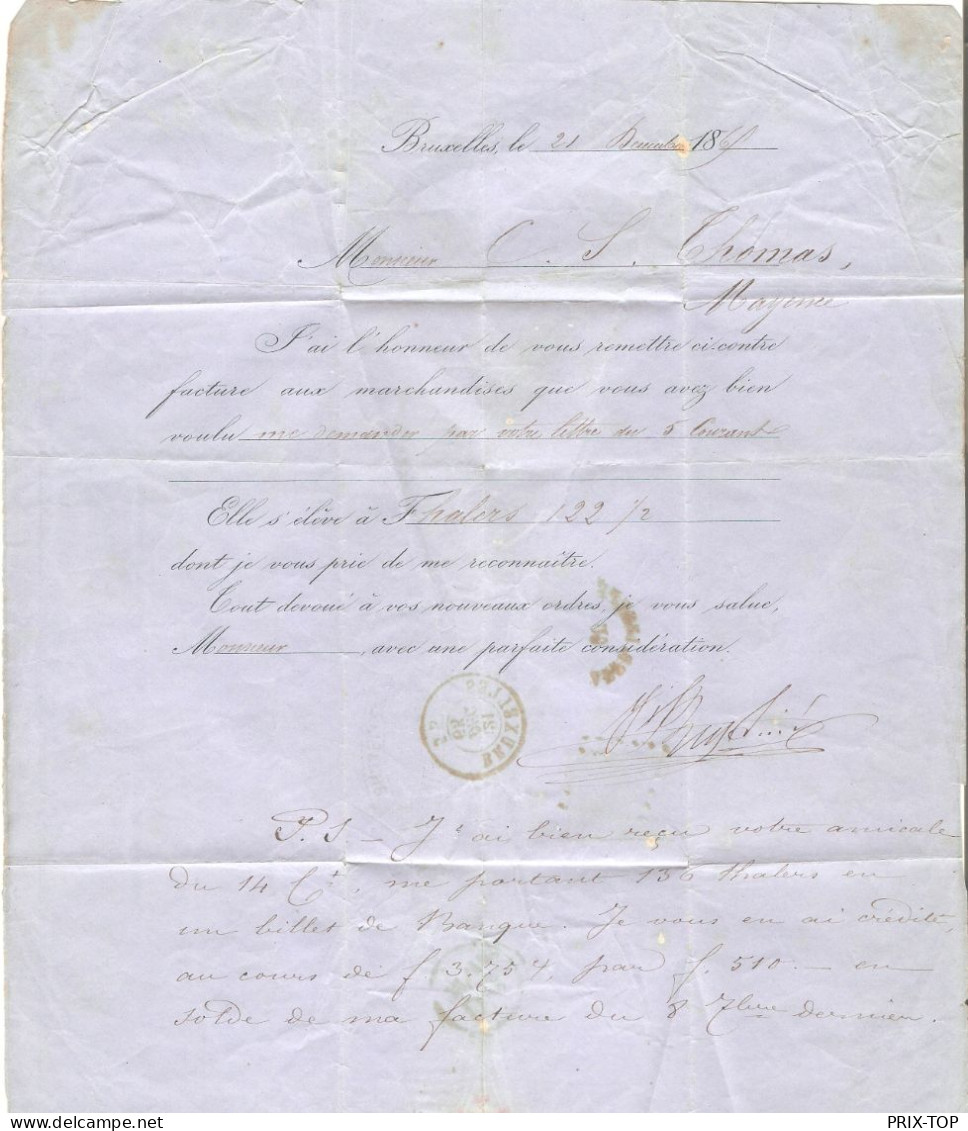 Bruxelles, le 21 Decembre 186
Monsieur C. S. Thomas,
Mayence
J'ai l'honneur de vous remettre ci-contre
facture aux marchandises que vous avez bien
voulu me demander par votre lettre du 5 Courant
Elle s'élève à Thalers 122 1/2
dont je vous prie de me reconnaître.
Tout devoué à vos nouveaux ordres, je vous salue,
Monsieur, avec une parfaite considération.
BRUXELLES
P.S — J'ai bien reçu votre amicale
du 14 Ct, me portant 136 thalers en
un billet de Banque. Je vous en ai crédité,
au cours de f 3.75 par f. 510.— en
solde de ma facture du 8 7bre dernier.
PRIX-TOP